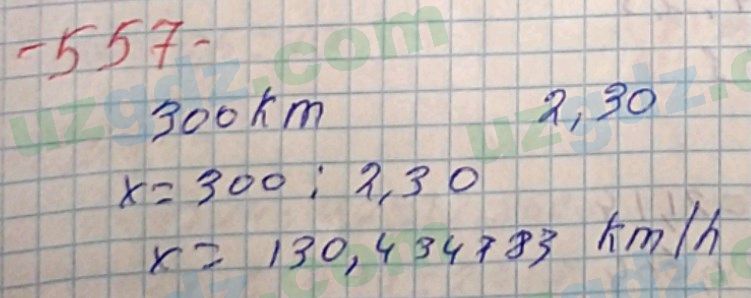 -557-
300 km 2,30
x = 300 : 2,30
x = 130,434783 km/h
uzgdz.com
uzgdz.com